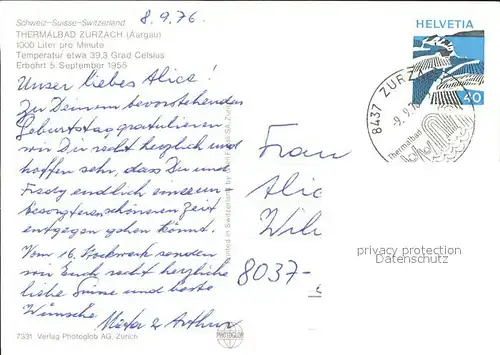 Schweiz-Suisse-Switzerland
8.9.76.
THERMALBAD ZURZACH (Aargau)
1000 Liter pro Minute
Temperatur etwa 39,3 Grad Celsius
Erbohrt 5. September 1955
HELVETIA
40
8437 ZURZ
-9.9.76
Thermalbad
Unser liebes Alice!
Zu Deinem bevorstehenden
Geburtstag gratulieren
wir Dir recht herzlich und
hoffen sehr, dass Du und
Fredy endlich einer
schöneren Zeit
entgegen gehen könnt.
Vom 16. Stockwerk senden
wir Euch recht herzliche
liebe Grüsse und beste
Wünsche
& Arthur
Frau
Alic
Wil
8037-
privacy protection
Datenschutz
Printed in Switzerland by
PHOTOGLOB
7331 Verlag Photoglob AG, Zürich